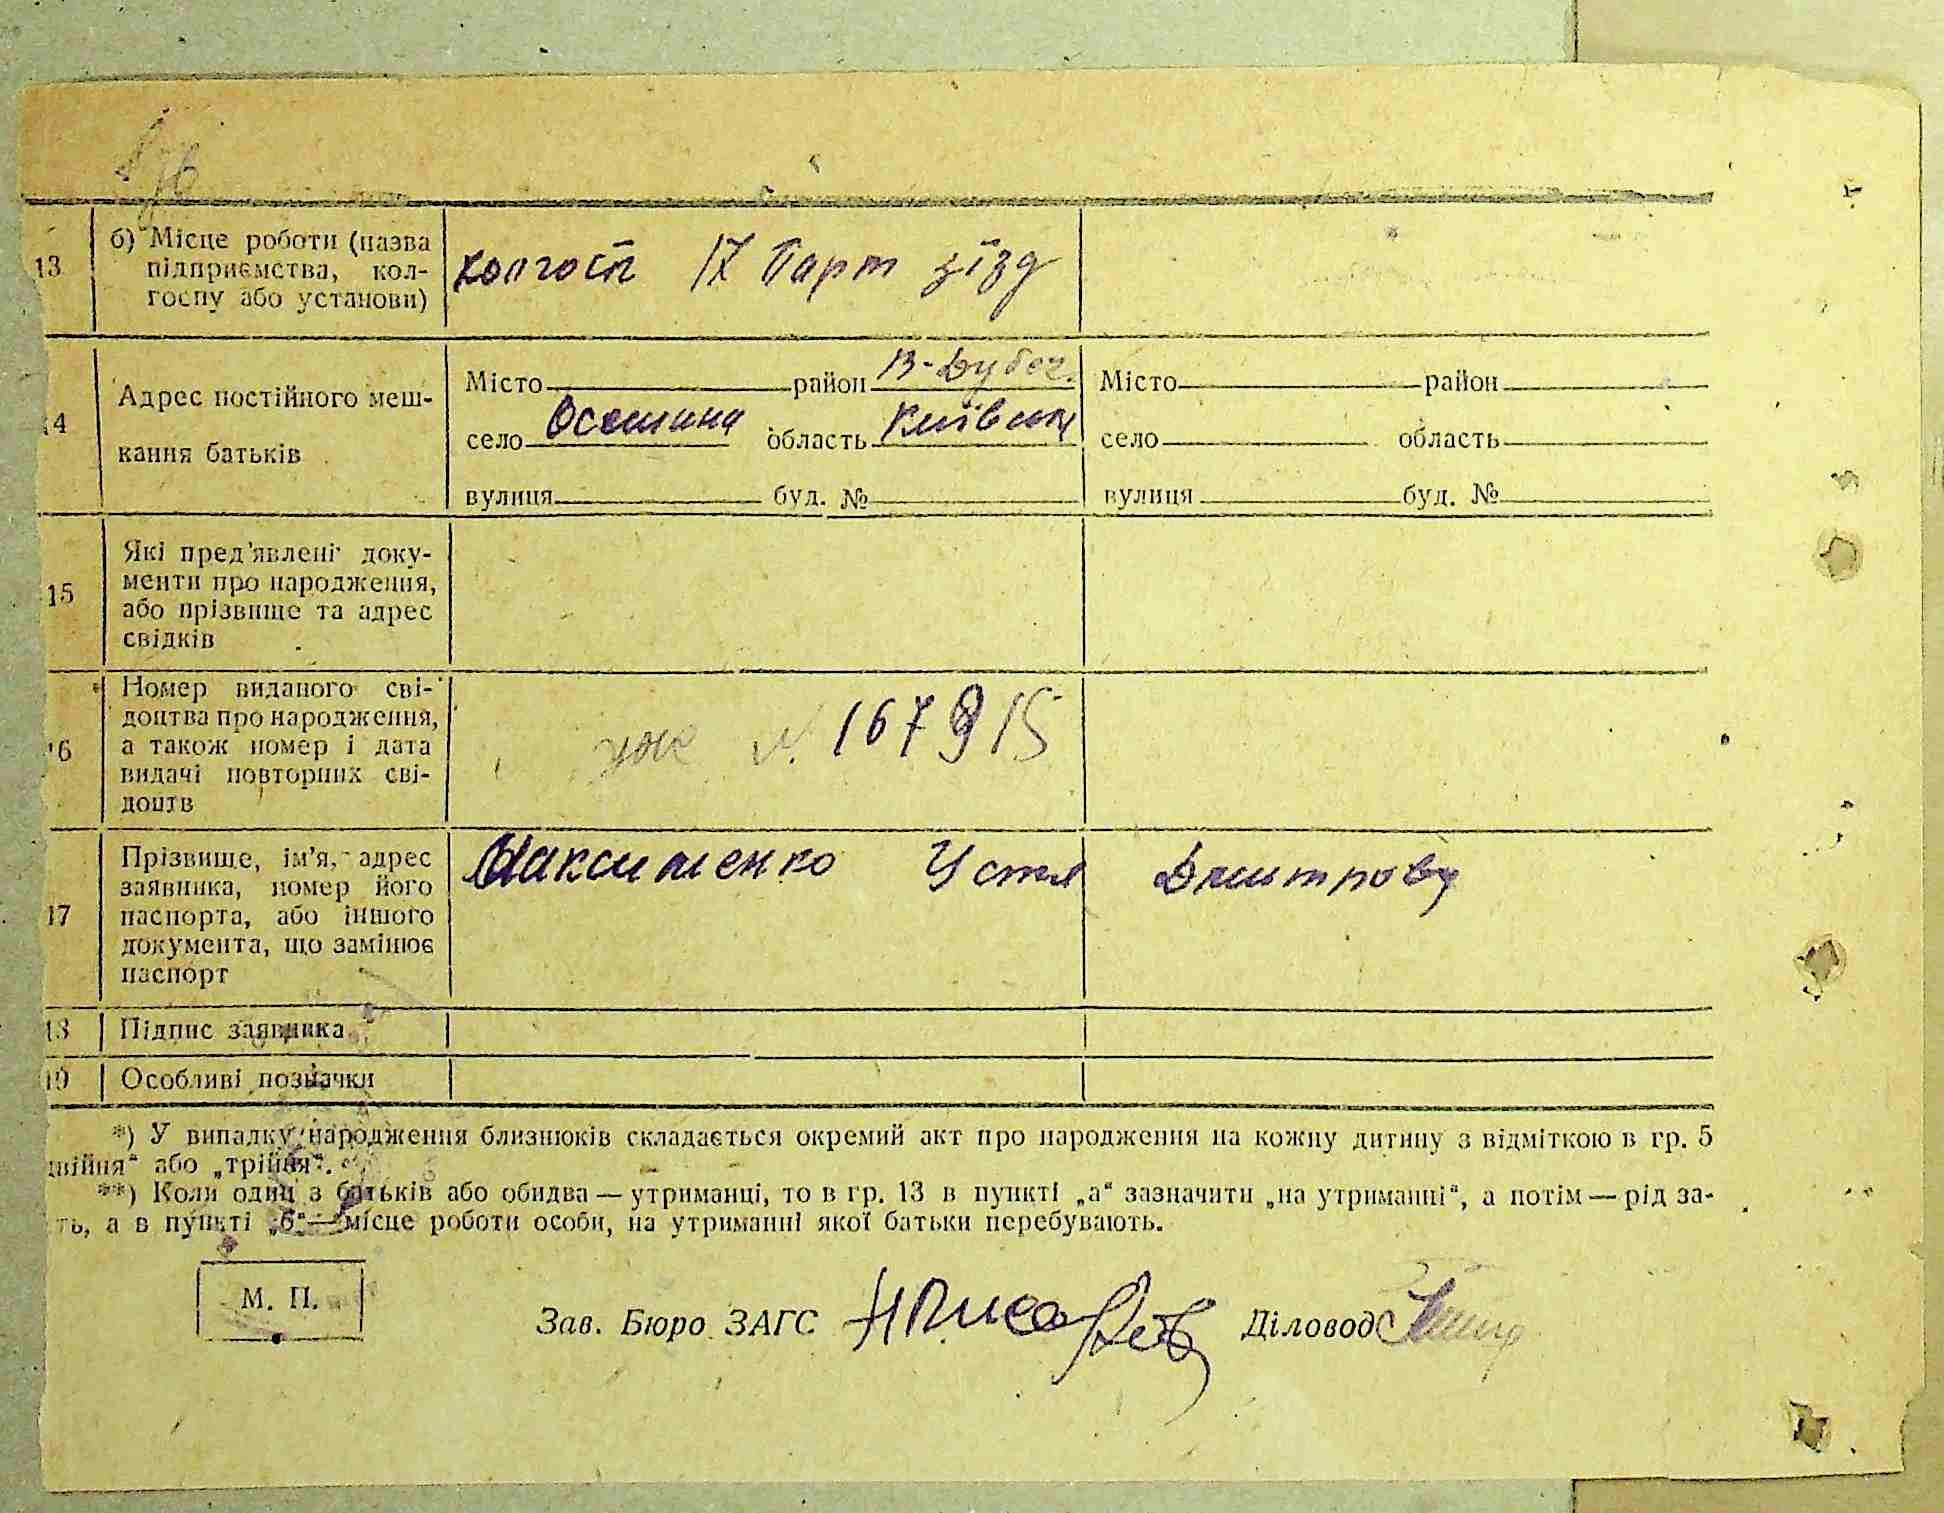 13
б) Місце роботи (назва
підприємства, кол-
госпу або установи)
колгосп 17 Парт зїзд
4
Адрес постійного меш-
кання батьків
Місто район В-Дубеч.
село Осещина область Київськ
вулиця буд. №
Місто район
село область
вулиця буд. №
15
Які пред'явлені доку-
менти про народження,
або прізвище та адрес
свідків
16
Номер виданого сві-
доцтва про народження,
а також номер і дата
видачі повторних сві-
доцтв
уже № 167915
17
Прізвище, ім'я, адрес
заявника, номер його
паспорта, або іншого
документа, що замінює
паспорт
Максименко Устя Дмитрову
18 Підпис заявника
19 Особливі позначки
*) У випадку народження близнюків складається окремий акт про народження на кожну дитину з відміткою в гр. 5
двійня" або „трійня".
**) Коли один з батьків або обидва — утриманці, то в гр. 13 в пункті „а" зазначити „на утриманні", а потім — рід за-
ть, а в пункті „б" — місце роботи особи, на утриманні якої батьки перебувають.
М. П.
Зав. Бюро ЗАГС Діловод